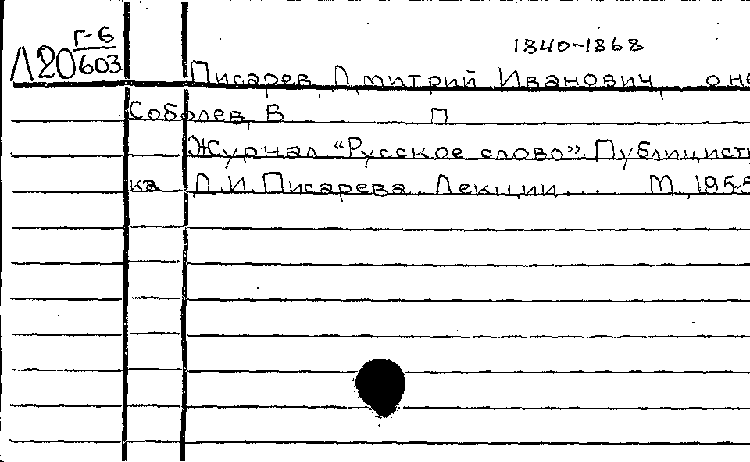 Г-6
Л20 603
1840-1868
Писарев, Дмитрий Иванович, о не
Соболев, В П
Журнал "Русское слово". Публицисти
ка Д.И. Писарева. Лекции... М., 1955